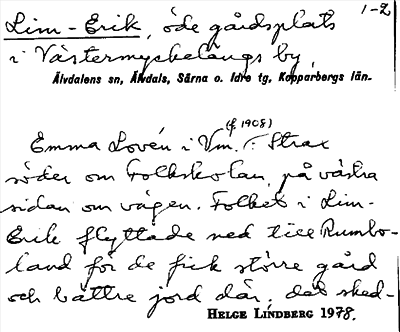 1-2
Lim-Erik, öde gårdsplats
i Västermyckelängs by,
Älvdalens sn, Älvdals, Särna o. Idre tg, Kopparbergs län.
(f. 1908)
Emma Lovén i Vm.: Strax
söder om folkskolan, på västra
sidan om vägen. Folket i Lim-
Erik flyttade ned till Rumbo-
land för de fick större gård
och bättre jord där, det sked-
HELGE LINDBERG 1978.